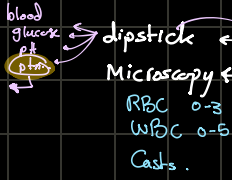 blood
glucose
pH
ptn
dipstick
Microscopy
RBC 0-3
WBC 0-5
Casts.